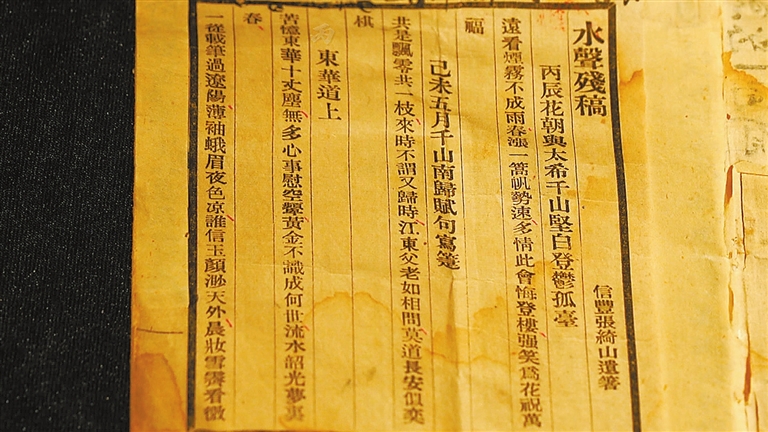 水聲殘稿
信豐張綺山遺箸
丙辰花朝與太希千山堅白登鬱孤臺
遠看煙霧不成雨春漲一篙帆勢速多情此會悔登樓强笑爲花祝萬
福
己未五月千山南歸賦句寫箑
共是飄零共一枝來時不謂又歸時江東父老如相問莫道長安似奕
棋
東華道上
苦憶東華十丈塵無多心事慰空顰黃金不識成何世流水韶光夢裏
春
一從載筆過遼陽薄袖蛾眉夜色凉誰信玉顏渺天外晨妝雪霽看微